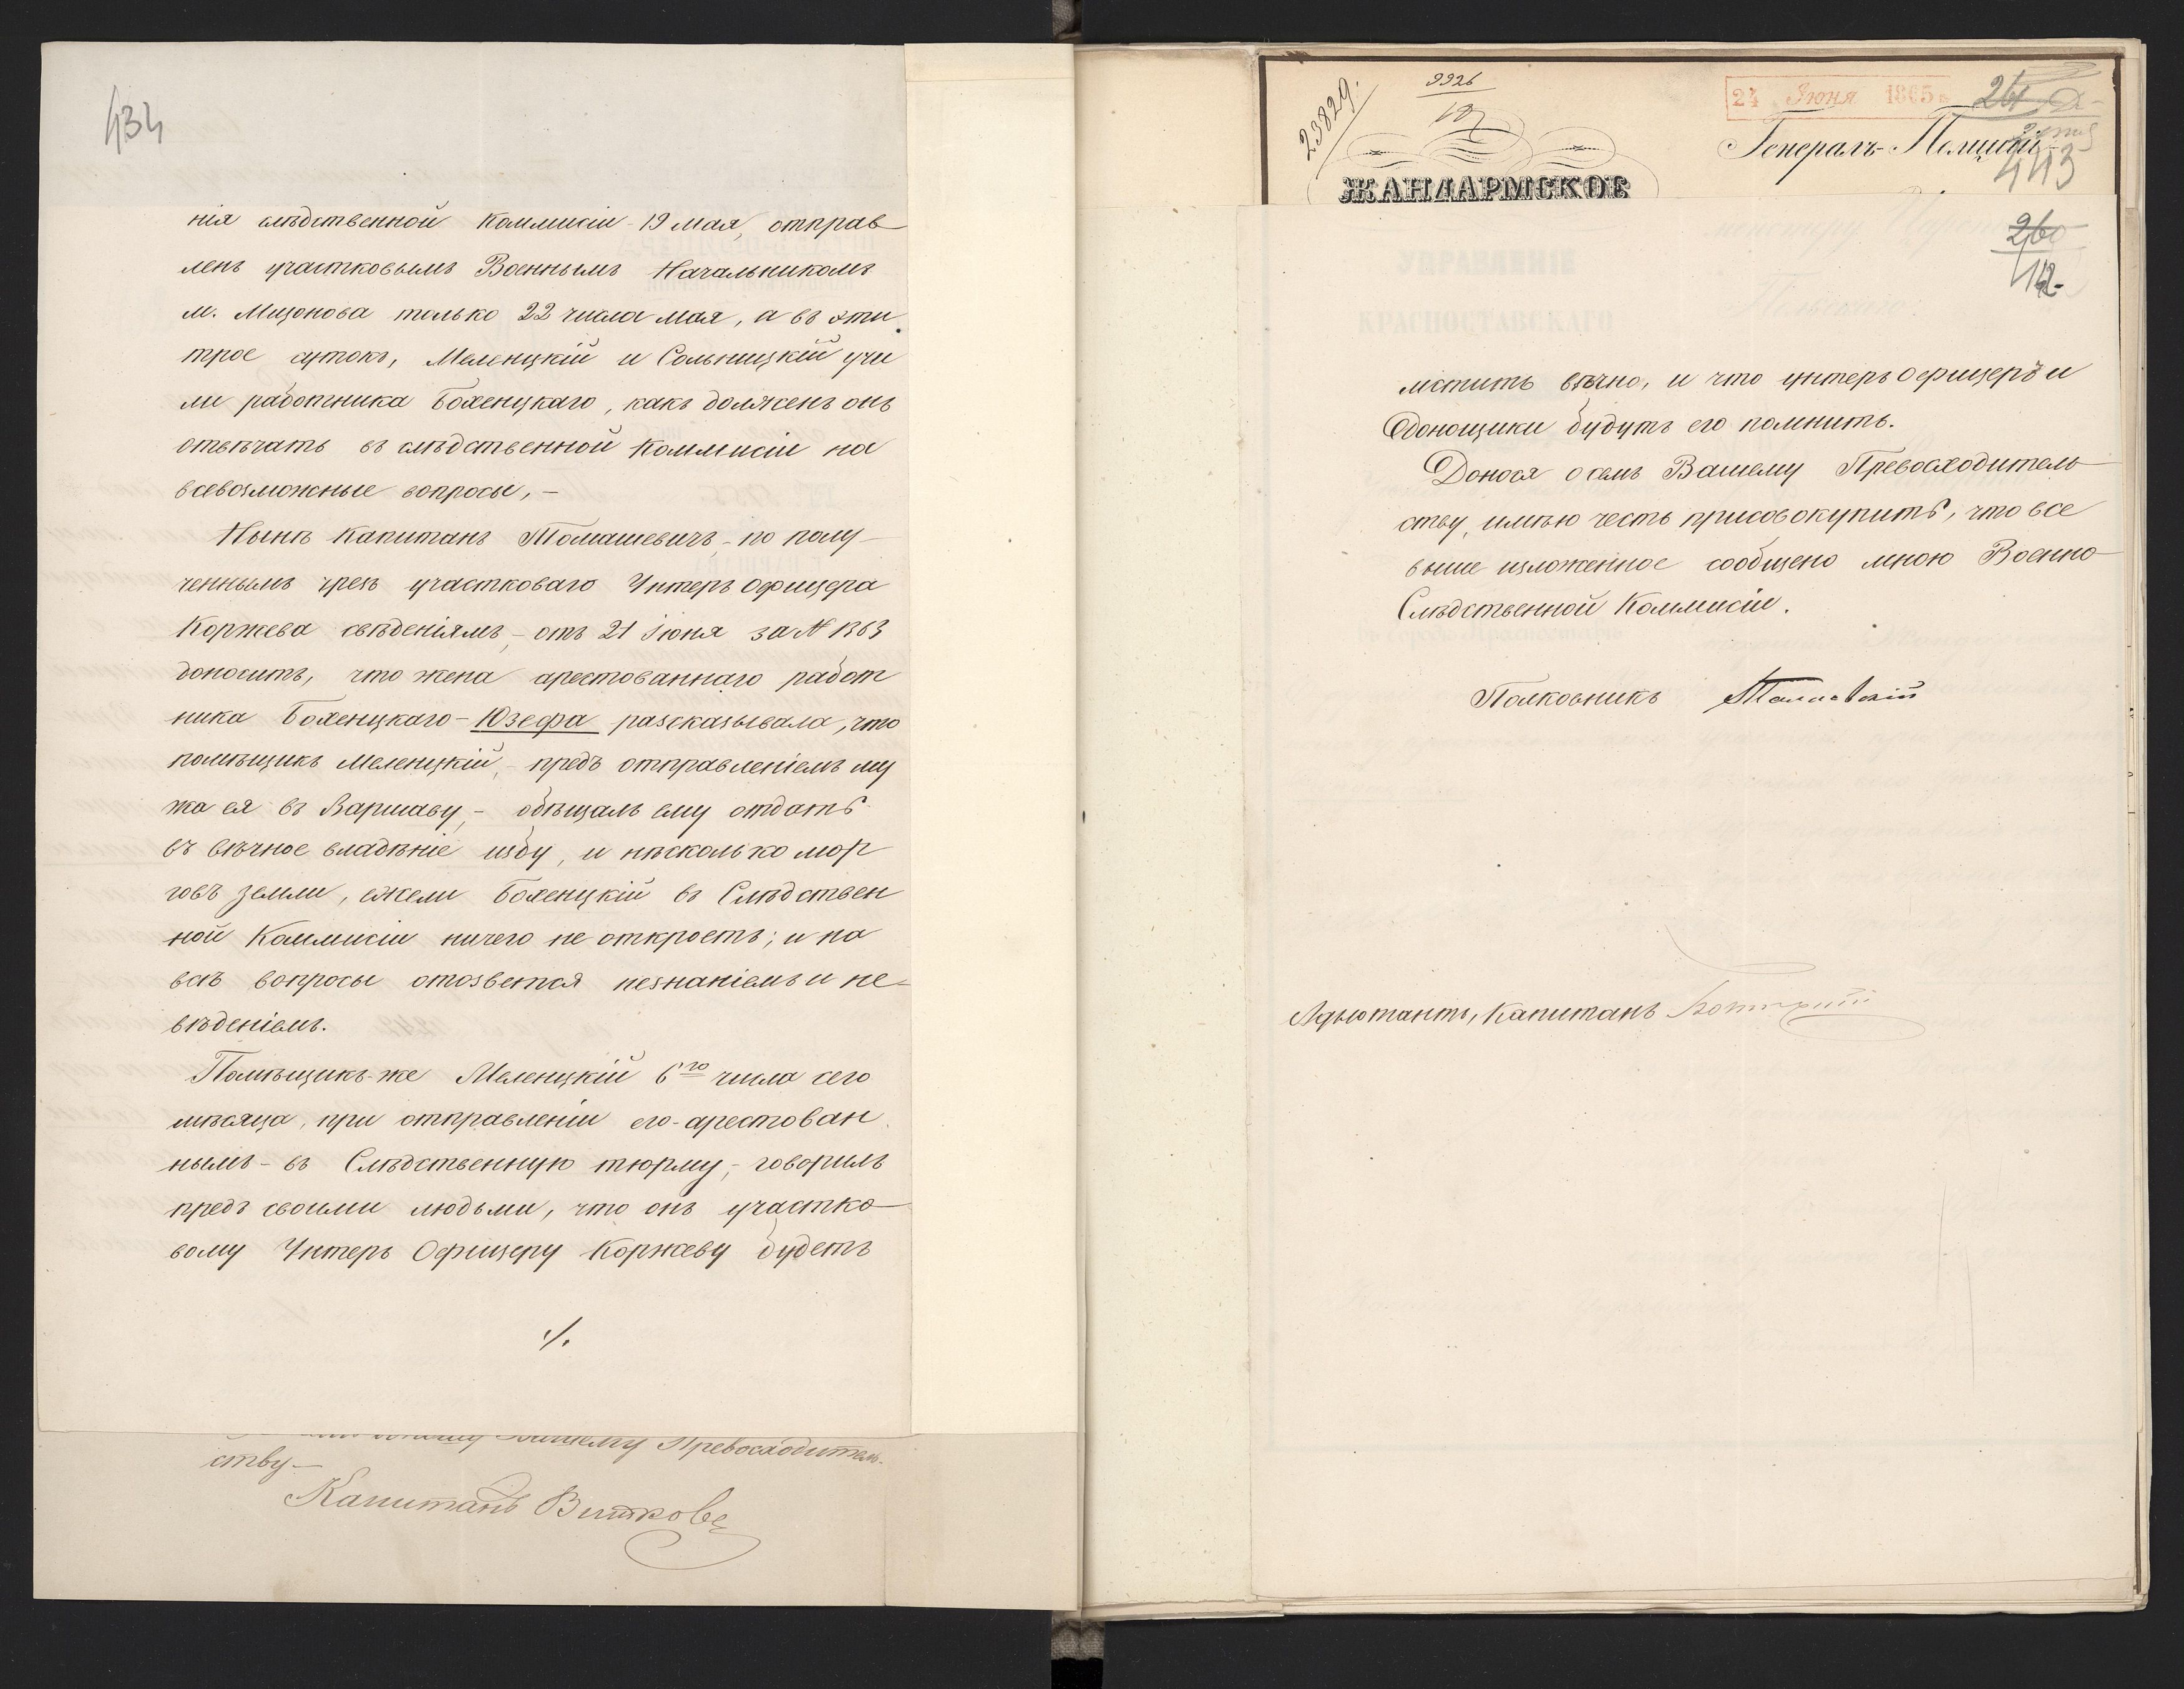 434
нія слѣдственной Коммисіи - 19 мая, отправ
ленъ участковымъ Военнымъ Начальникомъ
м. Мщонова только 22 числа мая, а въ эти
трое сутокъ, Меленцкій и Сольницкій учи
ли работника Бохенцкаго, какъ долженъ онъ
отвѣчать въ слѣдственной Коммисіи на
всевозможные вопросы, -
Нынѣ Капитанъ Томашевичъ - по полу
ченнымъ чрезъ участковаго Унтеръ Офицера
Коржева свѣденіямъ, - отъ 21 Іюня за № 1363
доноситъ, что жена арестованнаго работ
ника Бохенцкаго - Юзефа разсказывала, что
помѣщикъ Меленцкій, - предъ отправленіемъ му
жа ея въ Варшаву, - обѣщалъ ему отдать
въ вѣчное владѣніе избу, и нѣсколько мор
говъ земли, ежели Бохенцкій въ Слѣдствен
ной Коммисіи ничего не откроетъ; и на
всѣ вопросы отозвется незнаніемъ и не-
вѣденіемъ.
Помѣщикъ-же Меленцкій 6го числа сего
мѣсяца, при отправленіи его - арестован
нымъ - въ Слѣдственную тюрму, - говорилъ
предъ своими людьми, что онъ участко
вому Унтеръ Офицеру Коржеву будетъ
./.
Вашему Превосходитель-
ству -
Капитанъ
23829.
9926
24 Іюня 1865
Генералъ-Полицій-
443
ЖАНДАРМСКОЕ
260
442
мстить вѣчно, и что унтеръ Офицеръ и
доносщики будутъ его помнить.
Донося о семъ Вашему Превосходитель
ству, имѣю честь присовокупить, что все
выше изложенное сообщено мною Военно
Слѣдственной Коммисіи.
Полковникъ
Адъютантъ, Капитанъ